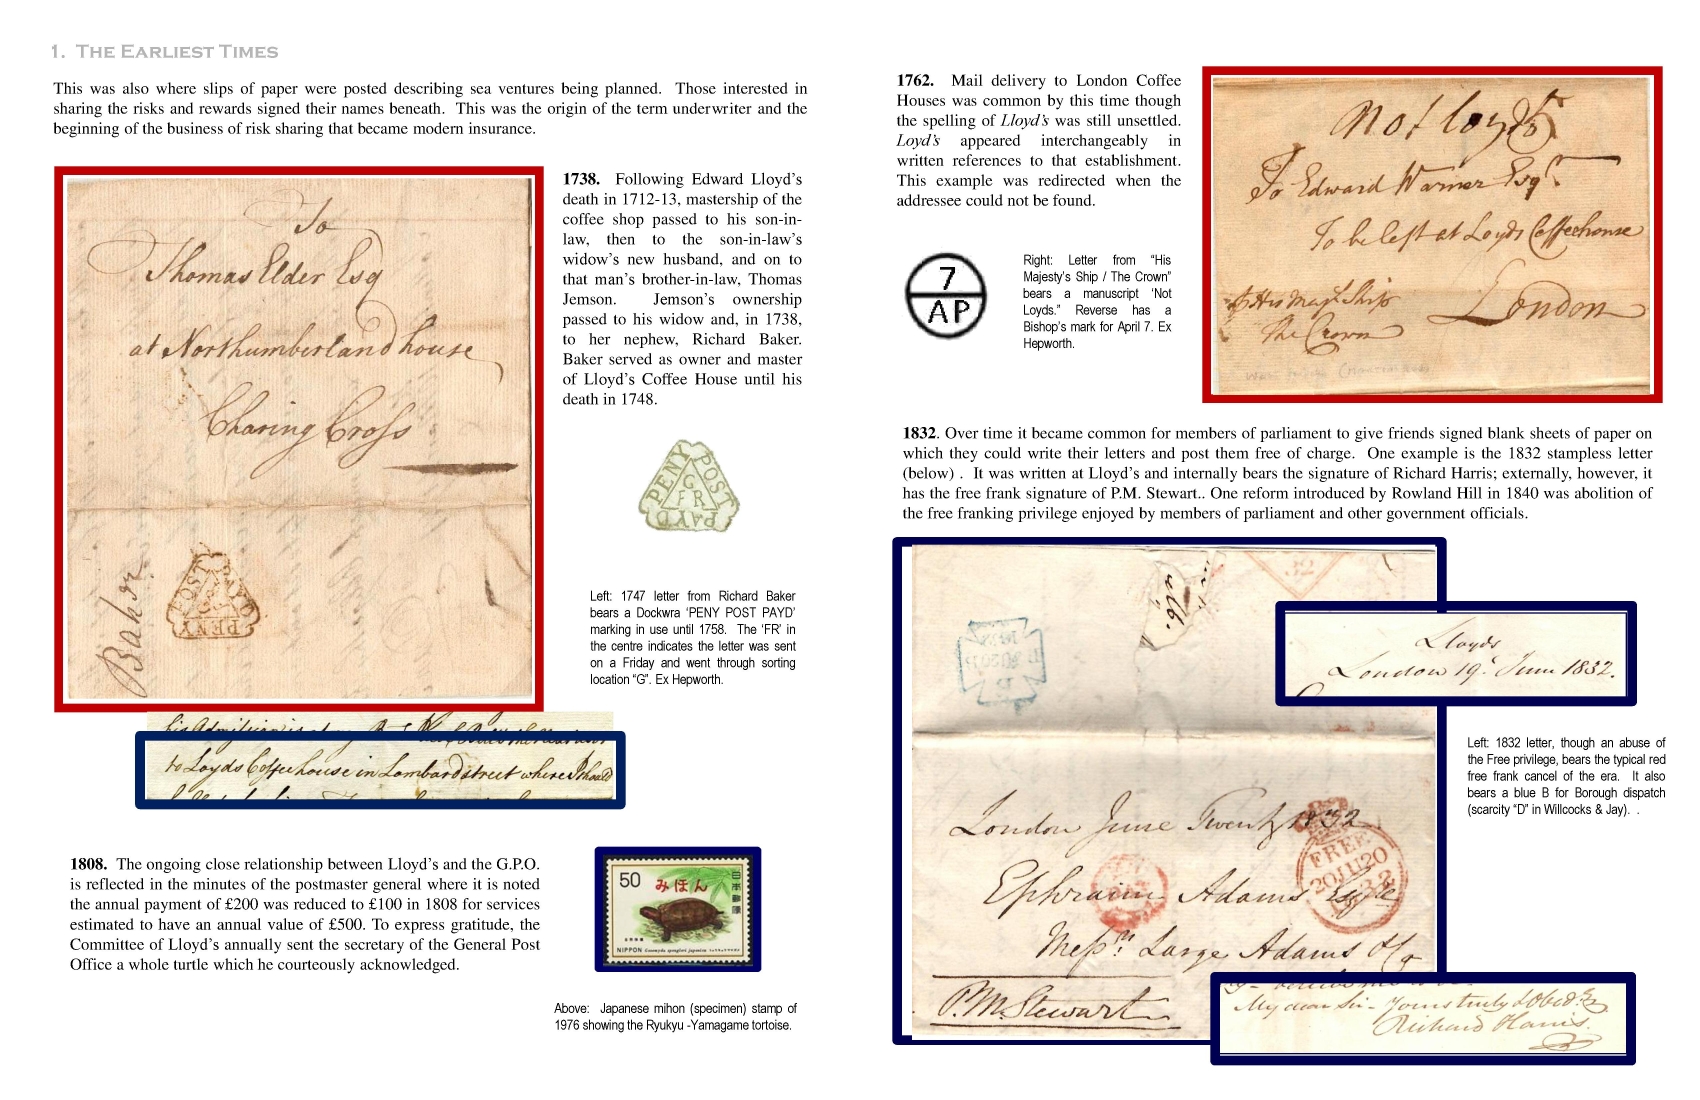 1. THE EARLIEST TIMES
This was also where slips of paper were posted describing sea ventures being planned. Those interested in
sharing the risks and rewards signed their names beneath. This was the origin of the term underwriter and the
beginning of the business of risk sharing that became modern insurance.
To
Thomas Elder Esq
at Northumberland house
Charing Cross
Baker
PENY POST PAYD
1738. Following Edward Lloyd’s
death in 1712-13, mastership of the
coffee shop passed to his son-in-
law, then to the son-in-law’s
widow’s new husband, and on to
that man’s brother-in-law, Thomas
Jemson. Jemson’s ownership
passed to his widow and, in 1738,
to her nephew, Richard Baker.
Baker served as owner and master
of Lloyd’s Coffee House until his
death in 1748.
PENY POST PAYD
G
FR
Left: 1747 letter from Richard Baker
bears a Dockwra ‘PENY POST PAYD’
marking in use until 1758. The ‘FR’ in
the centre indicates the letter was sent
on a Friday and went through sorting
location “G”. Ex Hepworth.
to Loyds Coffeehouse in Lombard street where I should
1808. The ongoing close relationship between Lloyd’s and the G.P.O.
is reflected in the minutes of the postmaster general where it is noted
the annual payment of £200 was reduced to £100 in 1808 for services
estimated to have an annual value of £500. To express gratitude, the
Committee of Lloyd’s annually sent the secretary of the General Post
Office a whole turtle which he courteously acknowledged.
50 みほん
日本郵便
NIPPON Geoemyda spengleri japonica
Above: Japanese mihon (specimen) stamp of
1976 showing the Ryukyu -Yamagame tortoise.
1762. Mail delivery to London Coffee
Houses was common by this time though
the spelling of Lloyd’s was still unsettled.
Loyd’s appeared interchangeably in
written references to that establishment.
This example was redirected when the
addressee could not be found.
7
AP
Right: Letter from “His
Majesty’s Ship / The Crown”
bears a manuscript ‘Not
Loyds.” Reverse has a
Bishop’s mark for April 7. Ex
Hepworth.
Not loyds
To Edward Warner Esqr.
To be left at Loyds Coffeehouse
London
p His Majts Ship
The Crown
1832. Over time it became common for members of parliament to give friends signed blank sheets of paper on
which they could write their letters and post them free of charge. One example is the 1832 stampless letter
(below) . It was written at Lloyd’s and internally bears the signature of Richard Harris; externally, however, it
has the free frank signature of P.M. Stewart.. One reform introduced by Rowland Hill in 1840 was abolition of
the free franking privilege enjoyed by members of parliament and other government officials.
32
Lloyds
London 19. June 1832.
Left: 1832 letter, though an abuse of
the Free privilege, bears the typical red
free frank cancel of the era. It also
bears a blue B for Borough dispatch
(scarcity “D” in Willcocks & Jay). .
London June Twenty 1832
FREE
20JU20
Ephraim Adams Esqre
Messrs. Large Adams & Co
P. M. Stewart
My dear Sir - Yours truly & Obedt.
Richard Harris.